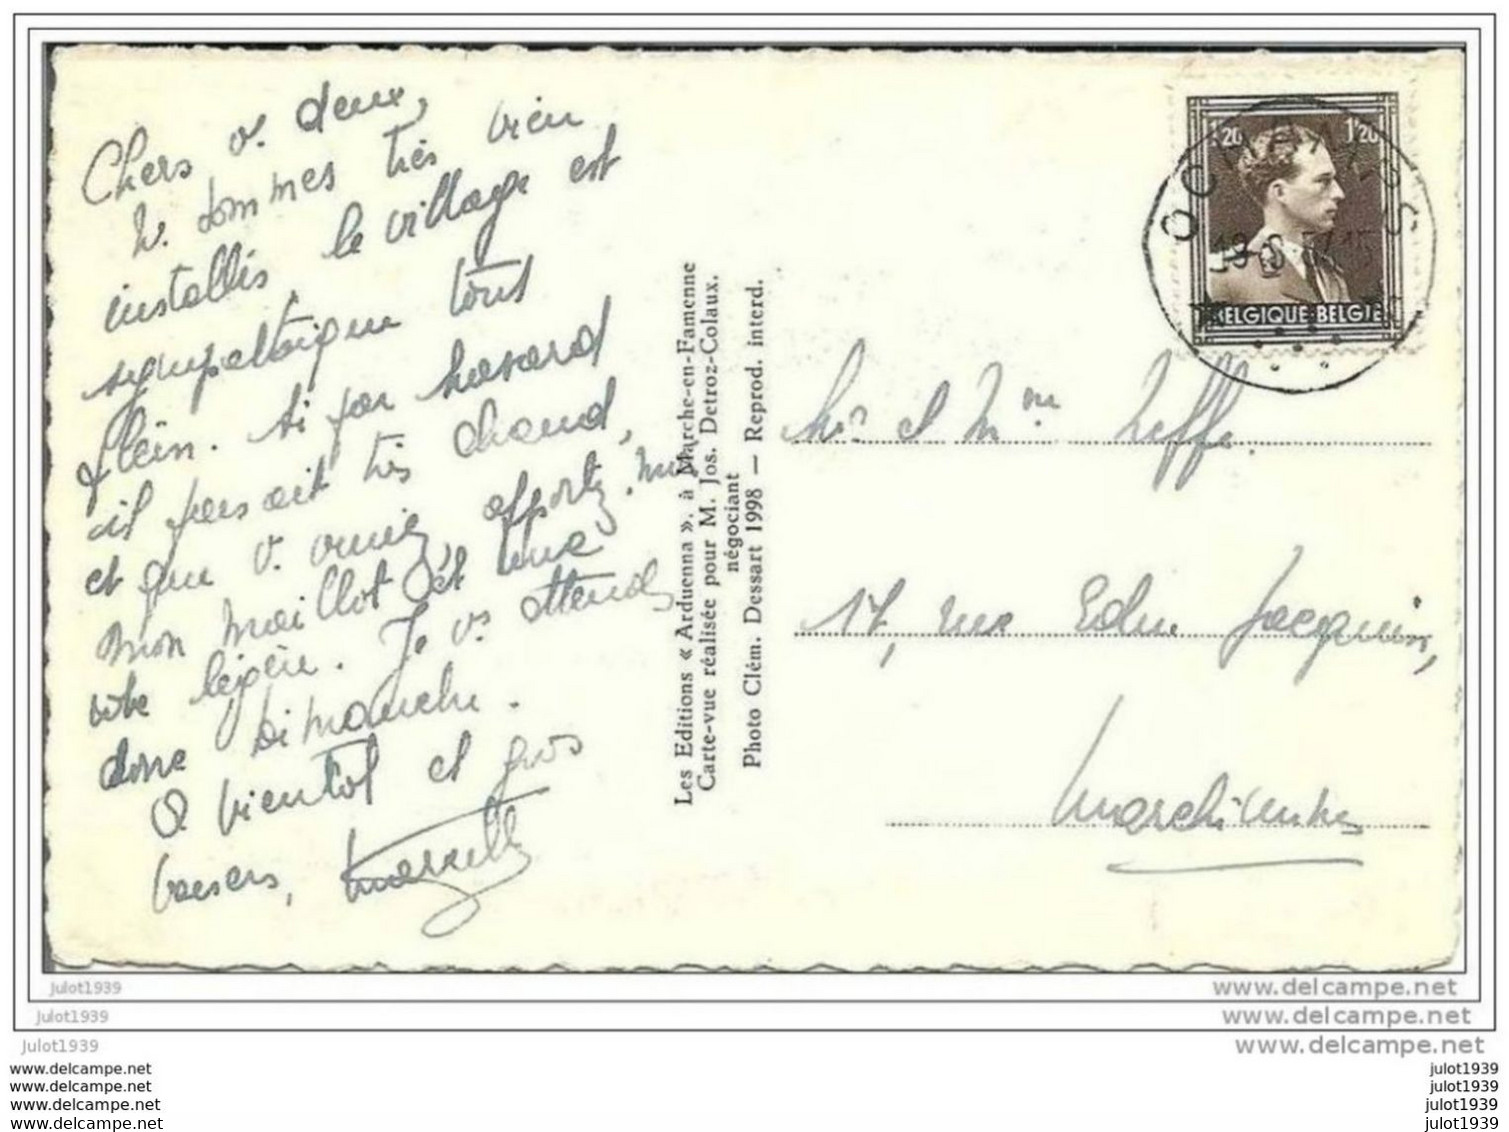 Chers v. deux,
N. sommes très bien
installés, le village est
sympathique tout
plein. Si par hasard
il faisait très chaud,
et que v. veniez, apportez-moi
mon maillot et une
robe légère. Je vs attends
donc Dimanche.
A bientôt et gros
baisers,
Les Editions « Arduenna ». à Marche-en-Famenne
Carte-vue réalisée pour M. Jos. Detroz-Colaux.
négociant
Photo Clém. Dessart 1998 — Reprod. interd.
1.20 1.20
BELGIQUE-BELGIE
Mr et Mme Leffe.
17, rue Edm. Jacquin,
Marchienne
julot1939
julot1939
julot1939
www.delcampe.net
www.delcampe.net
www.delcampe.net
www.delcampe.net
www.delcampe.net
www.delcampe.net
www.delcampe.net
julot1939
julot1939
julot1939
julot1939